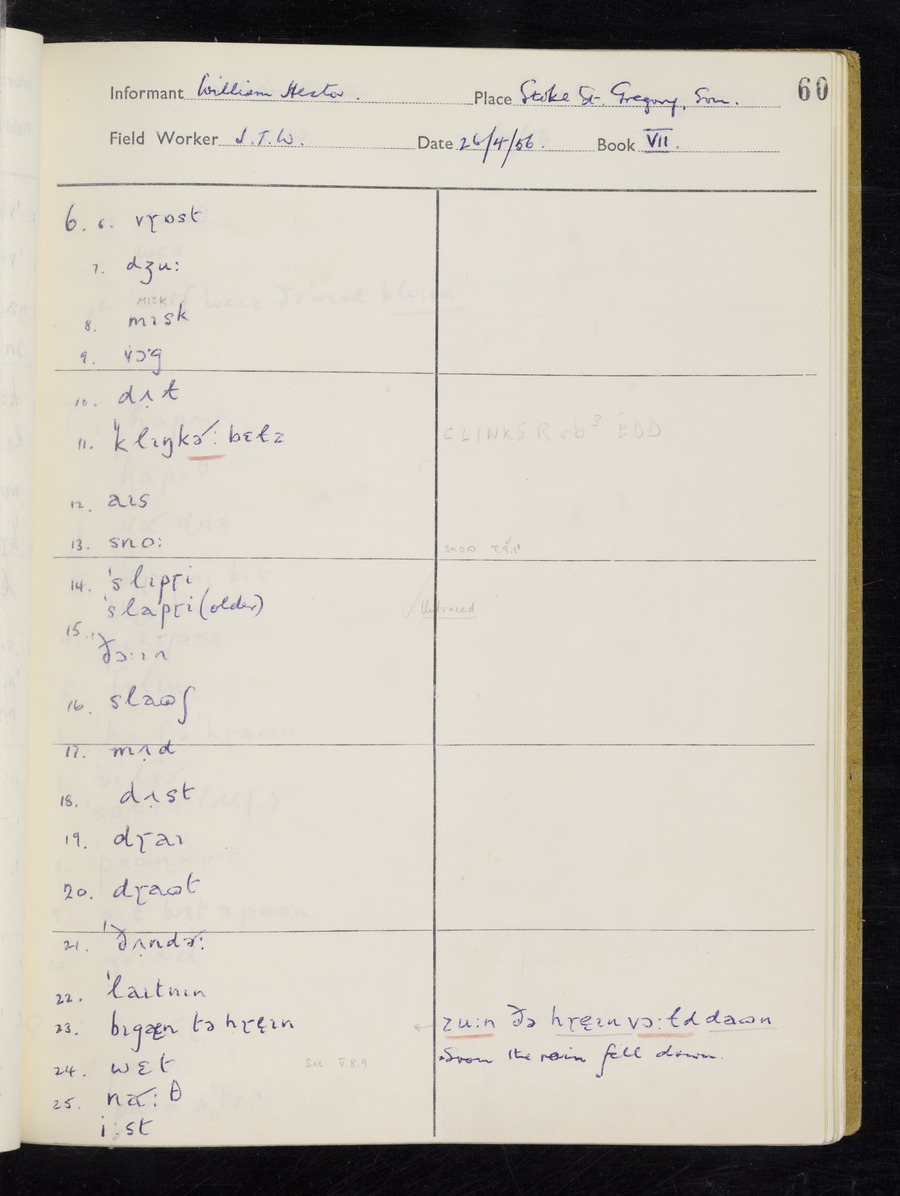 60
Informant William Hector. Place Stoke St. Gregory, Som.
Field Worker J.T.W. Date 26/4/56. Book VII.
6. 6. vɽɒst
7. dʒu:
MISK
8. mɪsk
9. vɔ'g
10. dʌ̣t
11. 'klɪŋkə˞: bɛɫz
CLINKER sb³ EDD
12. aɪs
13. snɔ:
14. 'slɪpɽi
'slapɽi (older)
Unbraced
15.
ðɔ:ɪn
16. slaʊʃ
17. mʌ̣d
18. dʌ̣st
19. dɽaɪ
20. dɽaʊt
21. 'ðʌ̣ndə˞:
22. 'laɪtnɪn
23. bɪgæn tə hɽɛ̨ɪn
← zu:n ðə hɽɛ̨ɪn vɔ:ɫd daʊn
Soon the rain fell down.
24. wɛt
See V.8.9
25. na˞:θ
i:st